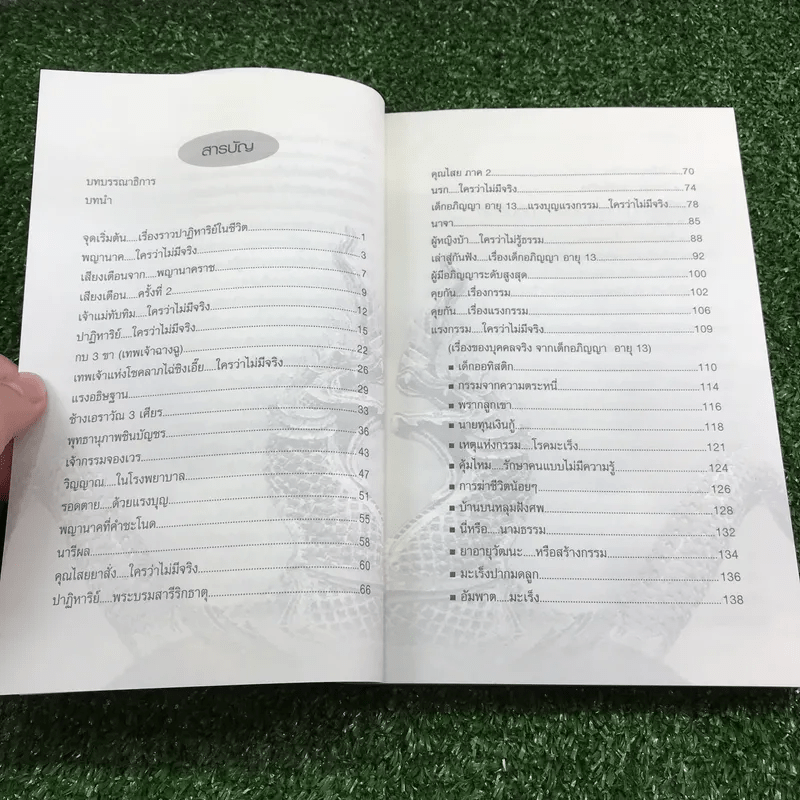 สารบัญ
บทบรรณาธิการ
บทนำ
จุดเริ่มต้น.....เรื่องราวปาฏิหาริย์ในชีวิต 1
พญานาค.....ใครว่าไม่มีจริง 3
เสียงเตือนจาก.....พญานาคราช 7
เสียงเตือน.....ครั้งที่ 2 9
เจ้าแม่ทับทิม.....ใครว่าไม่มีจริง 12
ปาฏิหาริย์.....ใครว่าไม่มีจริง 15
กบ 3 ขา (เทพเจ้าฉางฉู) 22
เทพเจ้าแห่งโชคลาภไฉ่ซิงเอี๊ย.....ใครว่าไม่มีจริง 26
แรงอธิษฐาน 29
ช้างเอราวัณ 3 เศียร 33
พุทธานุภาพชินบัญชร 36
เจ้ากรรมจองเวร 43
วิญญาณ.....ในโรงพยาบาล 47
รอดตาย.....ด้วยแรงบุญ 51
พญานาคที่คำชะโนด 55
นารีผล 58
คุณไสยยาสั่ง.....ใครว่าไม่มีจริง 60
ปาฏิหาริย์.....พระบรมสารีริกธาตุ 66
คุณไสย ภาค 2 70
นรก.....ใครว่าไม่มีจริง 74
เด็กอภิญญา อายุ 13.....แรงบุญแรงกรรม.....ใครว่าไม่มีจริง 78
นาจา 85
ผู้หญิงบ้า.....ใครว่าไม่รู้ธรรม 88
เล่าสู่กันฟัง.....เรื่องเด็กอภิญญา อายุ 13 92
ผู้มีอภิญญาระดับสูงสุด 100
คุยกัน.....เรื่องกรรม 102
คุยกัน.....เรื่องแรงกรรม 106
แรงกรรม.....ใครว่าไม่มีจริง 109
(เรื่องของบุคคลจริง จากเด็กอภิญญา อายุ 13)
■ เด็กออทิสติก 110
■ กรรมจากความตระหนี่ 114
■ พรากลูกเขา 116
■ นายทุนเงินกู้ 118
■ เหตุแห่งกรรม.....โรคมะเร็ง 121
■ คุ้มไหม.....รักษาคนแบบไม่มีความรู้ 124
■ การฆ่าชีวิตน้อยๆ 126
■ บ้านบนหลุมฝังศพ 128
■ นี่หรือ.....นามธรรม 132
■ ยาอายุวัฒนะ.....หรือสร้างกรรม 134
■ มะเร็งปากมดลูก 136
■ อัมพาต.....มะเร็ง 138